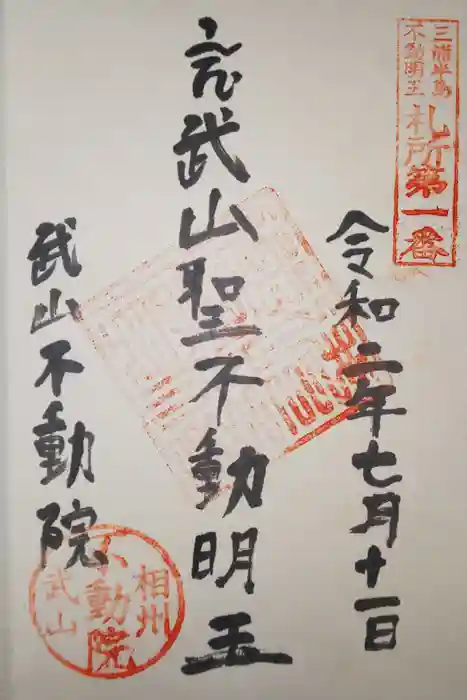 三浦半島
不動明王
札所第一番
令和二年七月十一日
武山聖不動明王
武山不動院
相州
不動院
武山